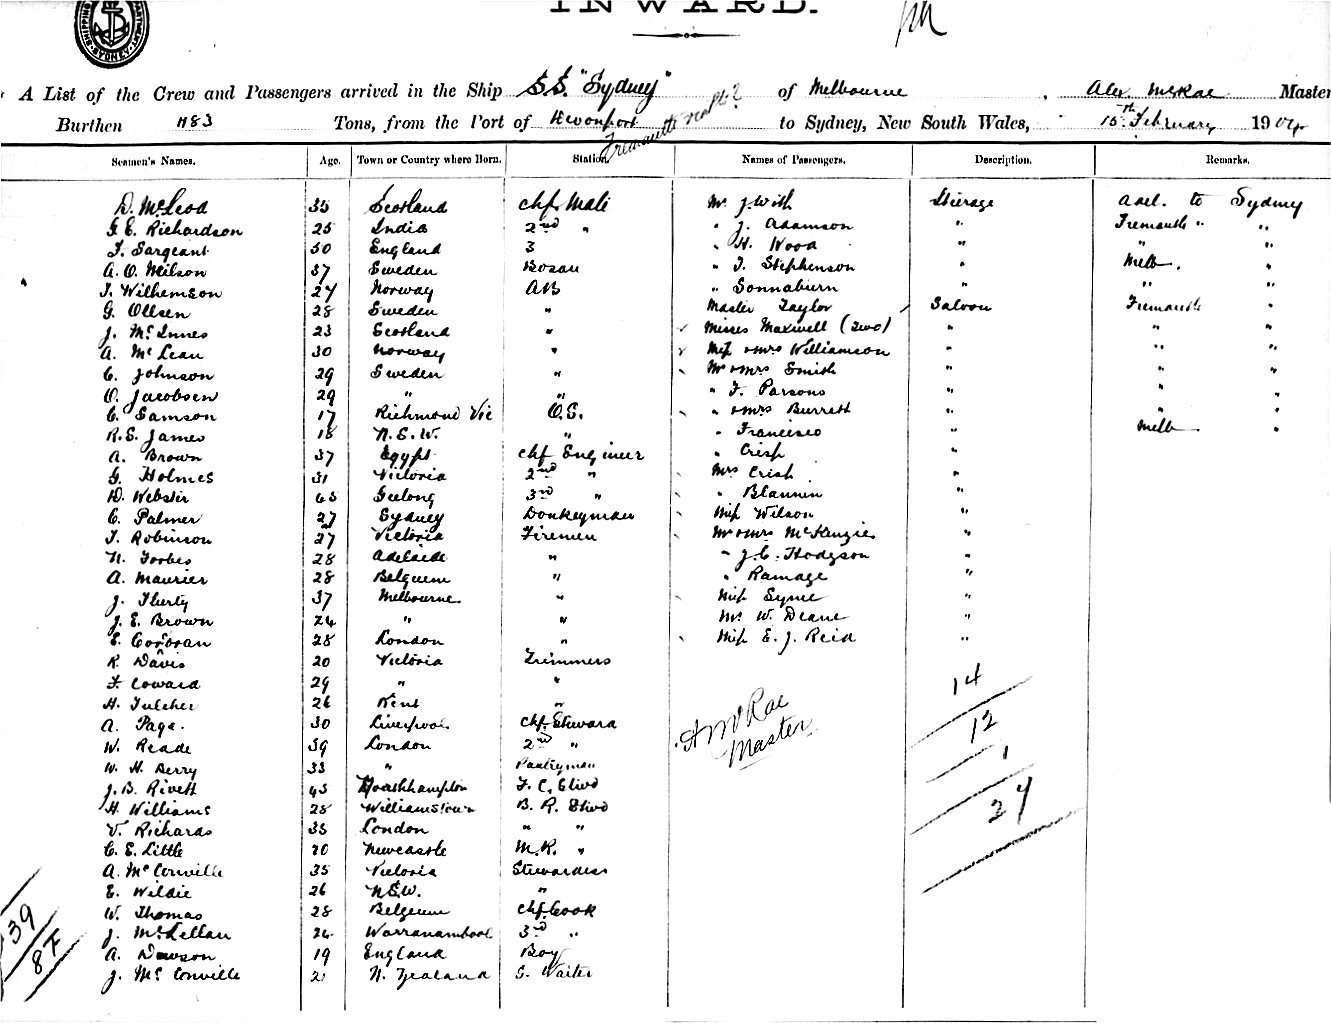 INWARD.
SHIPPING SYDNEY
A List of the Crew and Passengers arrived in the Ship S.S. "Sydney" of Melbourne, Alex. McRae Master
Burthen 1183 Tons, from the Port of Devonport Fremantle to Sydney, New South Wales, 15th February 190
Seamen's Names. Age. Town or Country where Born. Station Names of Passengers. Description. Remarks.
D. McLeod 35 Scotland Chf Mate Mr J. With Steerage Adel. to Sydney
G. E. Richardson 25 India 2nd " " J. Adamson " Fremantle " "
F. Sargeant 50 England 3 " H. Wood " " "
A. O. Neilson 37 Sweden Bosun " T. Stephenson " Melb. "
J. Wilhemson 27 Norway AB " Sonnaburn " " "
G. Ollsen 28 Sweden " Master Taylor Saloon Fremantle "
J. McInnes 23 Scotland " Misses Maxwell (two) " " "
A. McLean 30 Norway " Miss & Mrs Williamson " " "
C. Johnson 29 Sweden " Mr & Mrs Smith " " "
O. Jacobsen 29 " " " F. Parsons " " "
C. Samson 17 Richmond Vic O.S. " & Mrs Burrett " " "
R. S. James 18 N.S.W. " " Francisco " Melb "
A. Brown 37 Egypt Chf Engineer " Crisp "
G. Holmes 31 Victoria 2nd " Mrs Crisp "
D. Webster 45 Geelong 3rd " " Blannin "
C. Palmer 27 Sydney Donkeyman Miss Wilson "
J. Robinson 27 Victoria Firemen Mr & Mrs McKenzie "
N. Forbes 28 Adelaide " " J. C. Hodgson "
A. Maurier 28 Belguem " " Ramage "
J. Flurty 37 Melbourne " Miss Syme "
J. E. Brown 24 " " Mr W. Deane "
E. Cororan 28 London " Miss E. J. Reid "
R. Davis 20 Victoria Trimmers
F. Coward 29 " "
H. Tulcher 26 Kent " 14
A. Page 30 Liverpool Chf Steward A McRae 12
W. Reade 39 London 2nd " Master 1
W. H. Berry 33 " Pantryman
J. B. Rivett 43 F. C. Stwd 27
H. Williams 28 Williamstown B. R. Stwd
V. Richards 35 London " "
C. E. Little 20 Newcastle M.R. "
A. McConville 35 Victoria Stewardess
E. Wildie 26 N.S.W. "
W. Thomas 28 Belgeum Chf Cook
J. McLellan 24 Warranambool 3rd "
A. Dawson 19 England Boy
J. McConville 21 N. Zealand G. Waiter
39
87